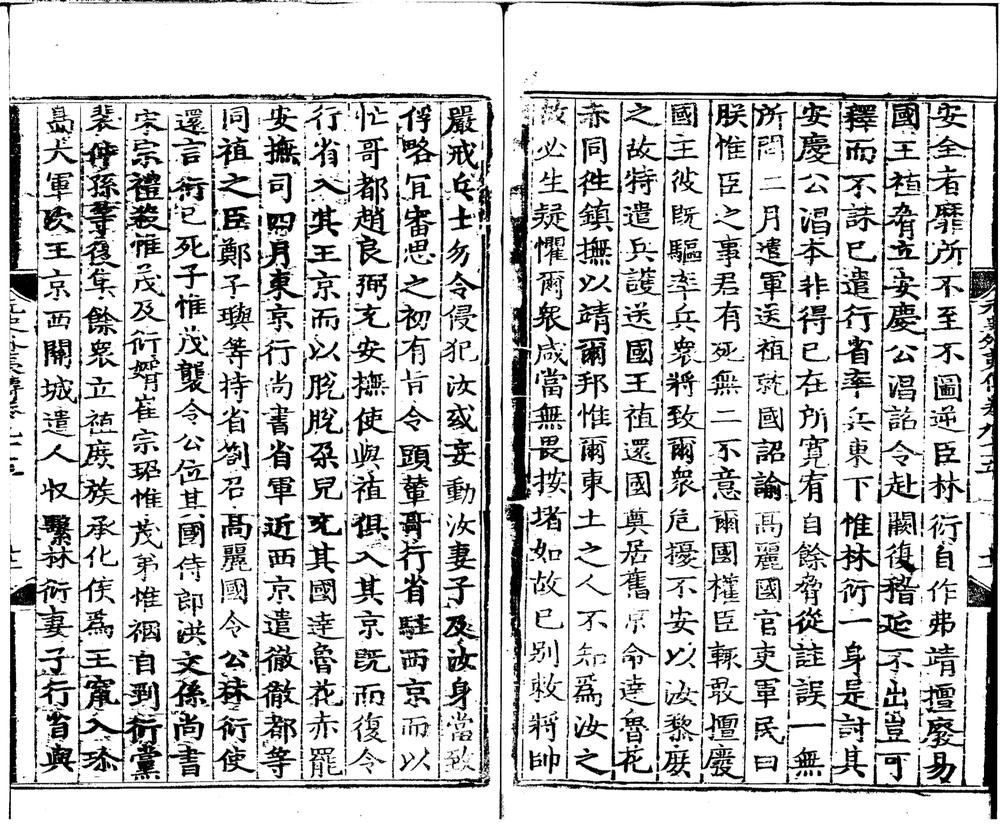 安全者靡所不至不圖逆臣林衍自作弗靖擅廢易
國王禃脅立安慶公淐詔令赴闕復稽延不出豈可
釋而不誅已遣行省率兵東下惟林衍一身是討其
安慶公淐本非得已在所寬宥自餘脅從詿誤一無
所問二月遣軍送禃就國詔諭高麗國官吏軍民曰
朕惟臣之事君有死無二不意爾國權臣輒敢擅廢
國主彼既驅率兵衆將致爾衆危擾不安以汝黎庶
之故特遣兵護送國王禃還國奠居舊京命達魯花
赤同徃鎮撫以靖爾邦惟爾東土之人不知爲汝之
故必生疑懼爾衆咸當無畏按堵如故已別敕將帥
嚴戒兵士勿令侵犯汝或妄動汝妻子及汝身當致
俘略宜審思之初有旨令頭輦哥行省駐西京而以
忙哥都趙良弼充安撫使與禃俱入其京既而復令
行省入其王京而以脫脫朶兒充其國達魯花赤罷
安撫司四月東京行尚書省軍近西京遣徹徹都等
同禃之臣鄭子璵等持省劄召高麗國令公林衍使
還言衍已死子惟茂襲令公位其國侍郎洪文係尚書
宋宗禮殺惟茂及衍婿崔宗瑺惟茂弟惟裀自剄衍黨
裴仲孫等復集餘衆立禃庶族承化侯爲王竄入珍
島大軍次王京西關城遣人收繫林衍妻子行省與